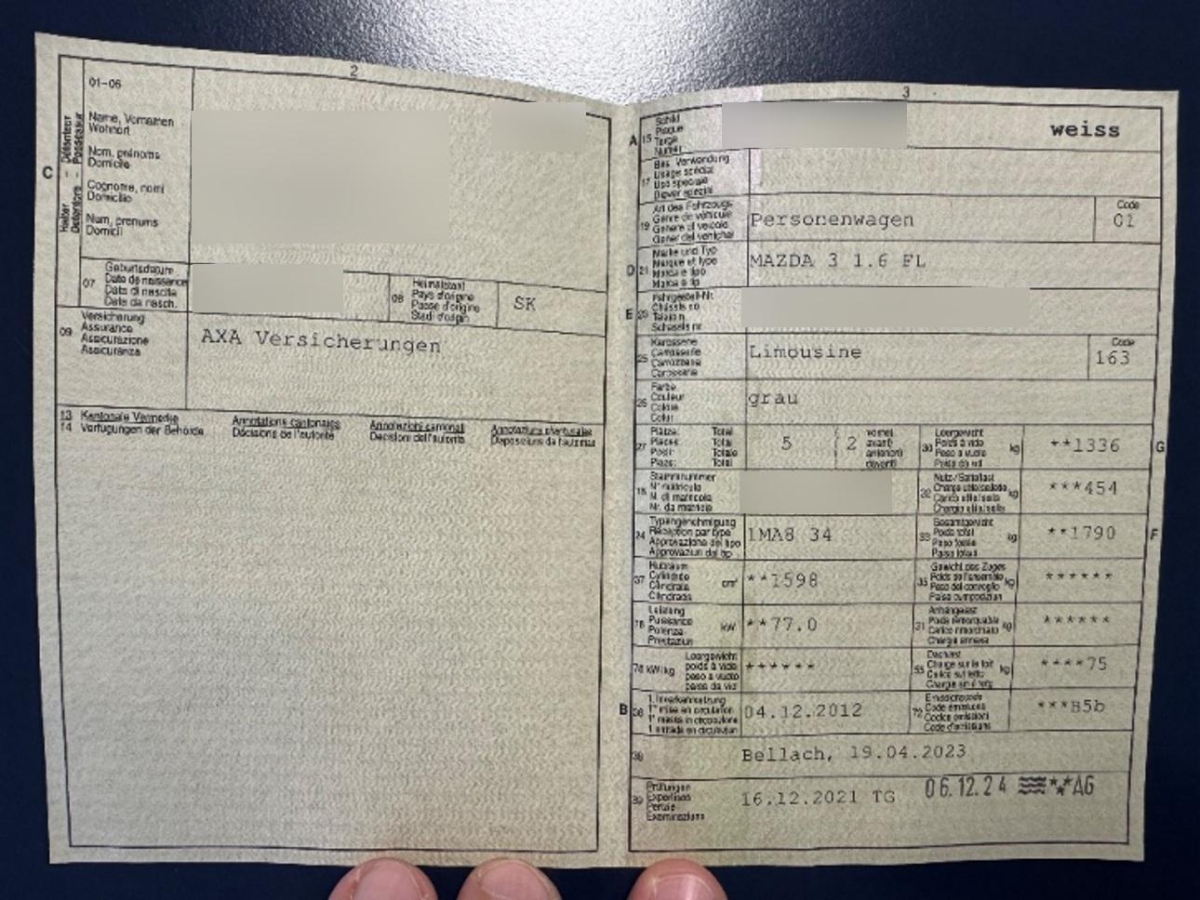 2
01-06
C
Halter - Détenteur
Detentore - Possessur
Name, Vornamen
Wohnort
Nom, prénoms
Domicile
Cognome, nomi
Domicilio
Num, prenums
Domicil
07
Geburtsdatum
Date de naissance
Data di nascita
Data da nasch.
08
Heimatstaat
Pays d'origine
Paese d'origine
Stadi d'origin
SK
09
Versicherung
Assurance
Assicurazione
Assicuranza
AXA Versicherungen
13 Kantonale Vermerke
14 Verfügungen der Behörde
Annotations cantonales
Décisions de l'autorité
Annotazioni cantonali
Decisioni dell'autorità
Annotaziuns chantunalas
Disposiziuns da l'autoritad
3
A 15
Schild
Plaque
Targa
Numer
weiss
17
Bes. Verwendung
Usage spécial
Uso speciale
Diever spezial
19
Art des Fahrzeugs
Genre de véhicule
Genere di veicolo
Gener dal vehichel
Personenwagen
Code
01
D 21
Marke und Typ
Marque et type
Marca e tipo
Marca e tip
MAZDA 3 1.6 FL
E 23
Fahrgestell-Nr.
Châssis no
Telaio n.
Schassis nr.
25
Karosserie
Carrosserie
Carrozzeria
Carosseria
Limousine
Code
163
26
Farbe
Couleur
Colore
Color
grau
27
Plätze: Total
Places: Total
Posti: Totale
Plazs: Total
5
2
vorne
avant
anteriori
davant
30
Leergewicht
Poids à vide
Peso a vuoto
Paisa da vid
kg
**1336
G
18
Stammnummer
N° matricule
N. di matricola
Nr. da matricla
32
Nutz-/Sattellast
Charge utile/sellette
Carico utile/sella
Chargia utila/sella
kg
***454
24
Typengenehmigung
Réception par type
Approvazione del tipo
Approvaziun dal tip
1MA8 34
33
Gesamtgewicht
Poids total
Peso totale
Paisa totala
kg
**1790
F
37
Hubraum
Cylindrée
Cilindrata
Cilindrada
cm³
**1598
35
Gewicht des Zuges
Poids de l'ensemble
Peso del convoglio
Paisa cumposiziun
kg
******
76
Leistung
Puissance
Potenza
Prestaziun
kW
**77.0
31
Anhängelast
Poids remorquable
Carico rimorchiato
Chargia annexa
kg
******
78 kW/kg
Leergewicht
poids à vide
peso a vuoto
paisa da vid
******
55
Dachlast
Charge sur le toit
Carico sul tetto
Chargia sin il tetg
kg
****75
B 36
1. Inverkehrsetzung
1re mise en circulation
1a messa in circolazione
1. entrada en circulaziun
04.12.2012
72
Emissionscode
Code émissions
Codice emissioni
Code d'emissiuns
***B5b
38
Bellach, 19.04.2023
39
Prüfungen
Expertises
Perizie
Examinaziuns
16.12.2021 TG
06.12.24 AG